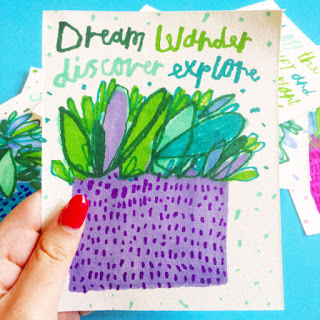 Dream Wander
discover explore